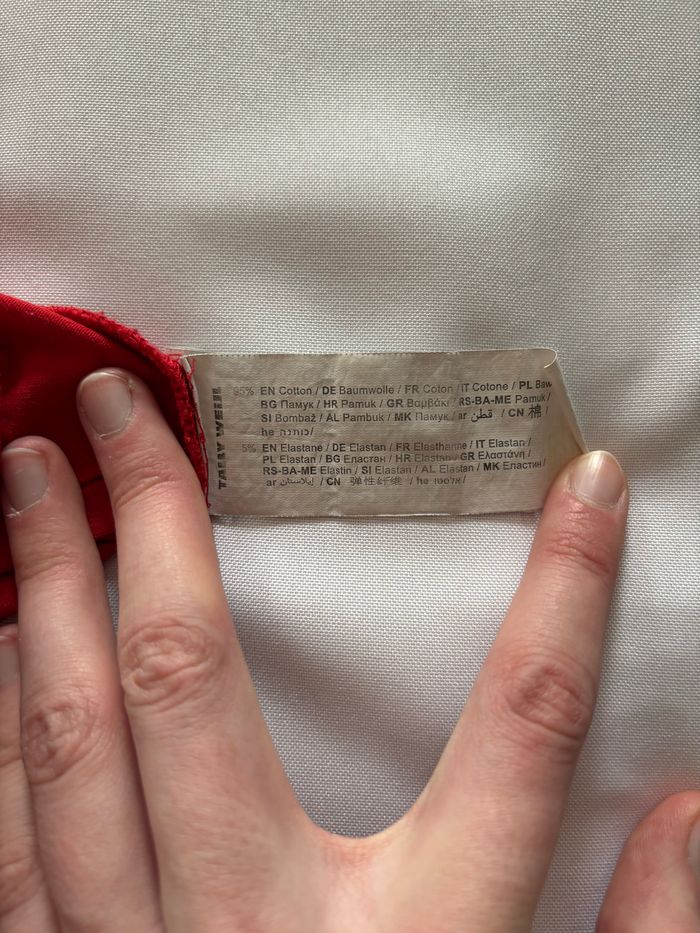 TALLY WEiJL
95% EN Cotton / DE Baumwolle / FR Coton / IT Cotone / PL Baw
BG Памук / HR Pamuk / GR Βαμβάκι / RS-BA-ME Pamuk /
SI Bombaž / AL Pamuk / MK Памук / ar قطن / CN 棉 /
he כותנה /
5% EN Elastane / DE Elastan / FR Elasthanne / IT Elastan /
PL Elastan / BG Еластан / HR Elastan / GR Ελαστάνη /
RS-BA-ME Elastin / SI Elastan / AL Elastan / MK Еластин /
ar إيلاستان / CN 弹性纤维 / he אלסטי /